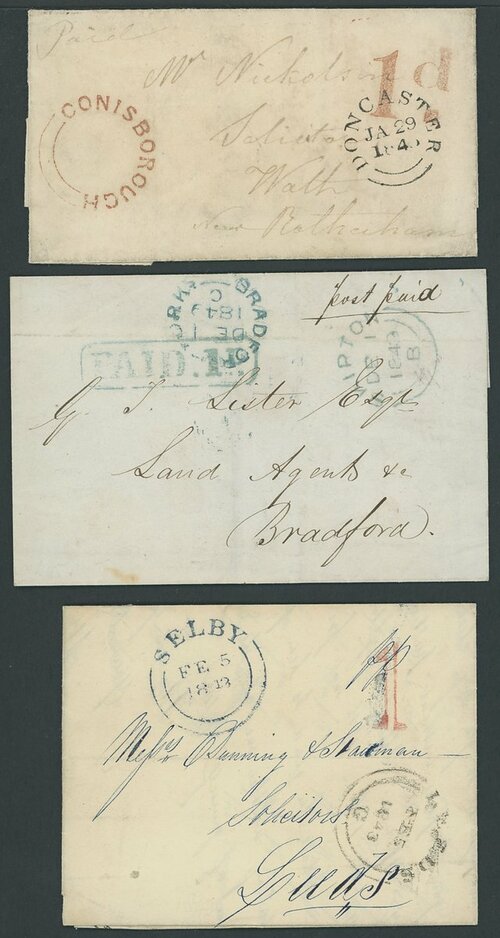 Paid
1d
Mr Nickolson
CONISBOROUGH
DONCASTER
JA 29
184
Solicitor
Wath
Near Rotherham
post paid
BRADFORD YORKS
DE 1
1849
C
PAID.1D
DE 1
1849
B
G. J. Lister Esqr
Land Agent &c
Bradford.
SELBY
FE 5
1843
pp
1
Messrs & 
Solicitors
Leeds
LEEDS
FE 5
1843
C